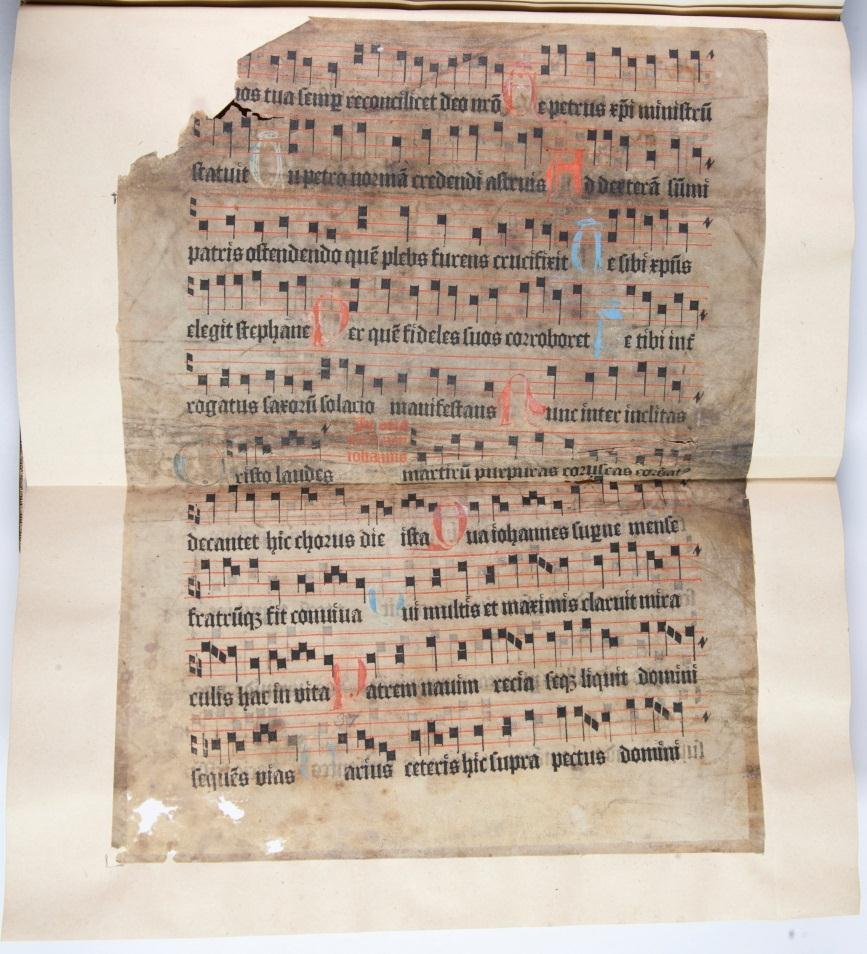 nos tua semp reconcilicet deo nrō Te petrus xpi ministrū
statuit Tu petro normā credendi astruis Ad dexterā sūmi
patris ostendendo quē plebs furens crucifixit Te sibi xpūs
elegit stephane Per quē fideles suos corroboret Te tibi int
rogatus saxorū solacio manifestans Nunc inter inclitas
iohannis
Cristo laudes martirū purpuras coruscas
decantet hic chorus die ista Qua iohannes supne mense
fratrūqz fit conuiua Qui multis et maximis claruit mira
culis hac in vita Patrem nauim recia seqz liquit domini
sequēs vias arius ceteris hic supra pectus domini